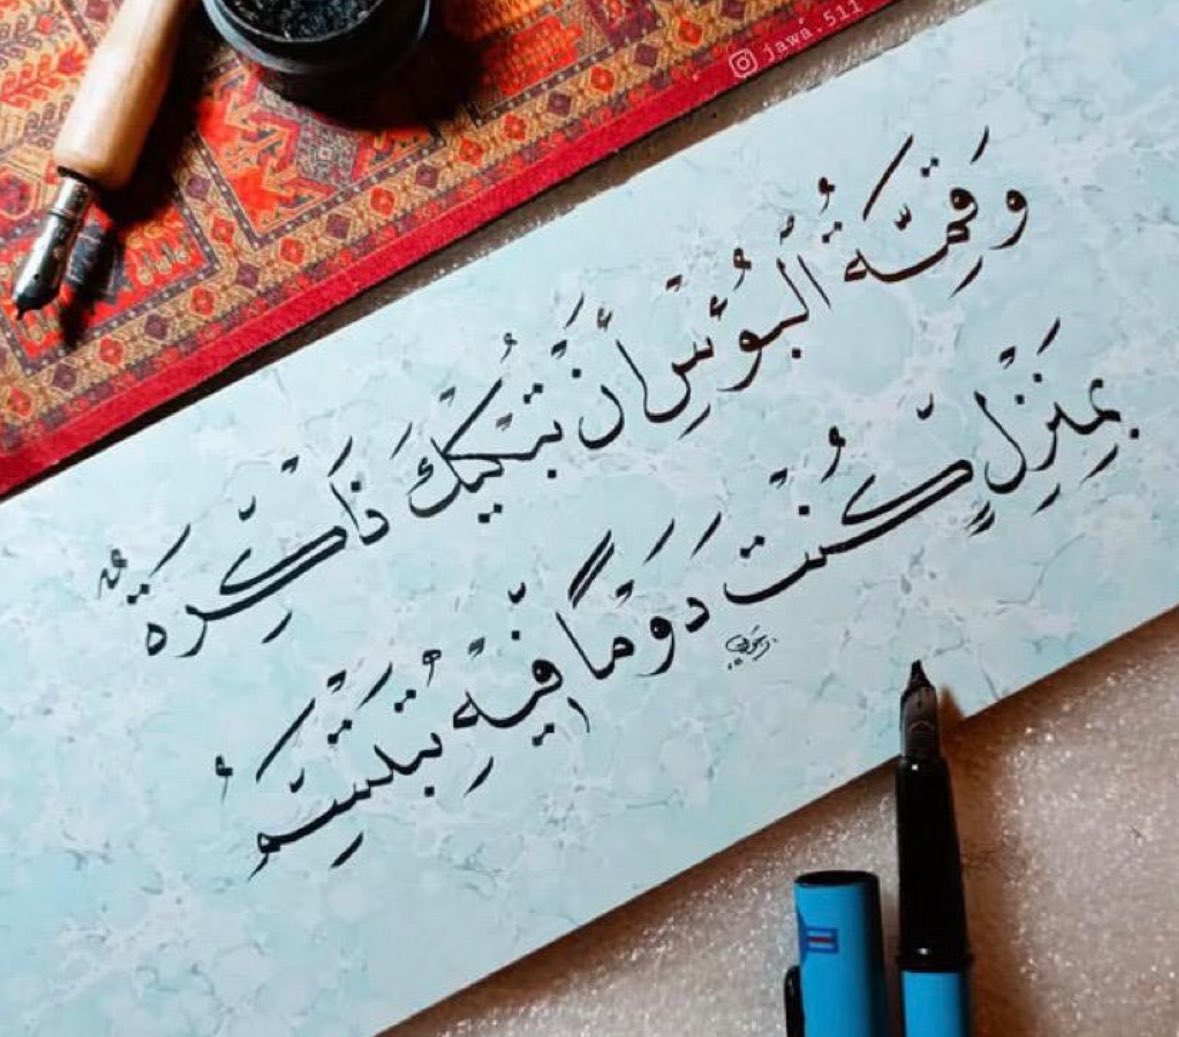 jawa.511
وَقِمَّةُ الْبُؤْسِ أَنْ تُبْكِيكَ ذَاكِرَةٌ
بِمَنْزِلٍ كُنْتَ دَوْمًا فِيهِ تَبْتَسِمُ